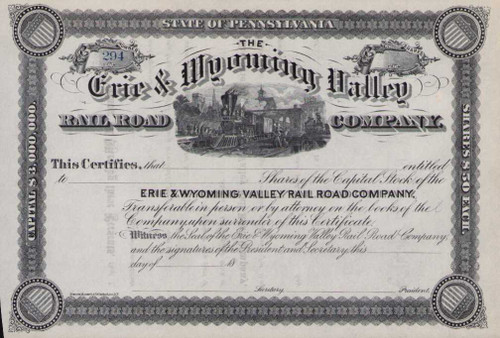 STATE OF PENNSYLVANIA
THE
294
Erie & Wyoming Valley
RAIL ROAD COMPANY.
CAPITAL $3,000,000.
SHARES $50 EACH.
This Certifies, that entitled
to Shares of the Capital Stock of the
ERIE & WYOMING VALLEY RAIL ROAD COMPANY.
Transferable in person or by attorney on the books of the
Company upon surrender of this Certificate.
Witness the Seal of the Erie & Wyoming Valley Rail Road Company,
and the signatures of the President and Secretary, this
day of 18
Secretary. President.